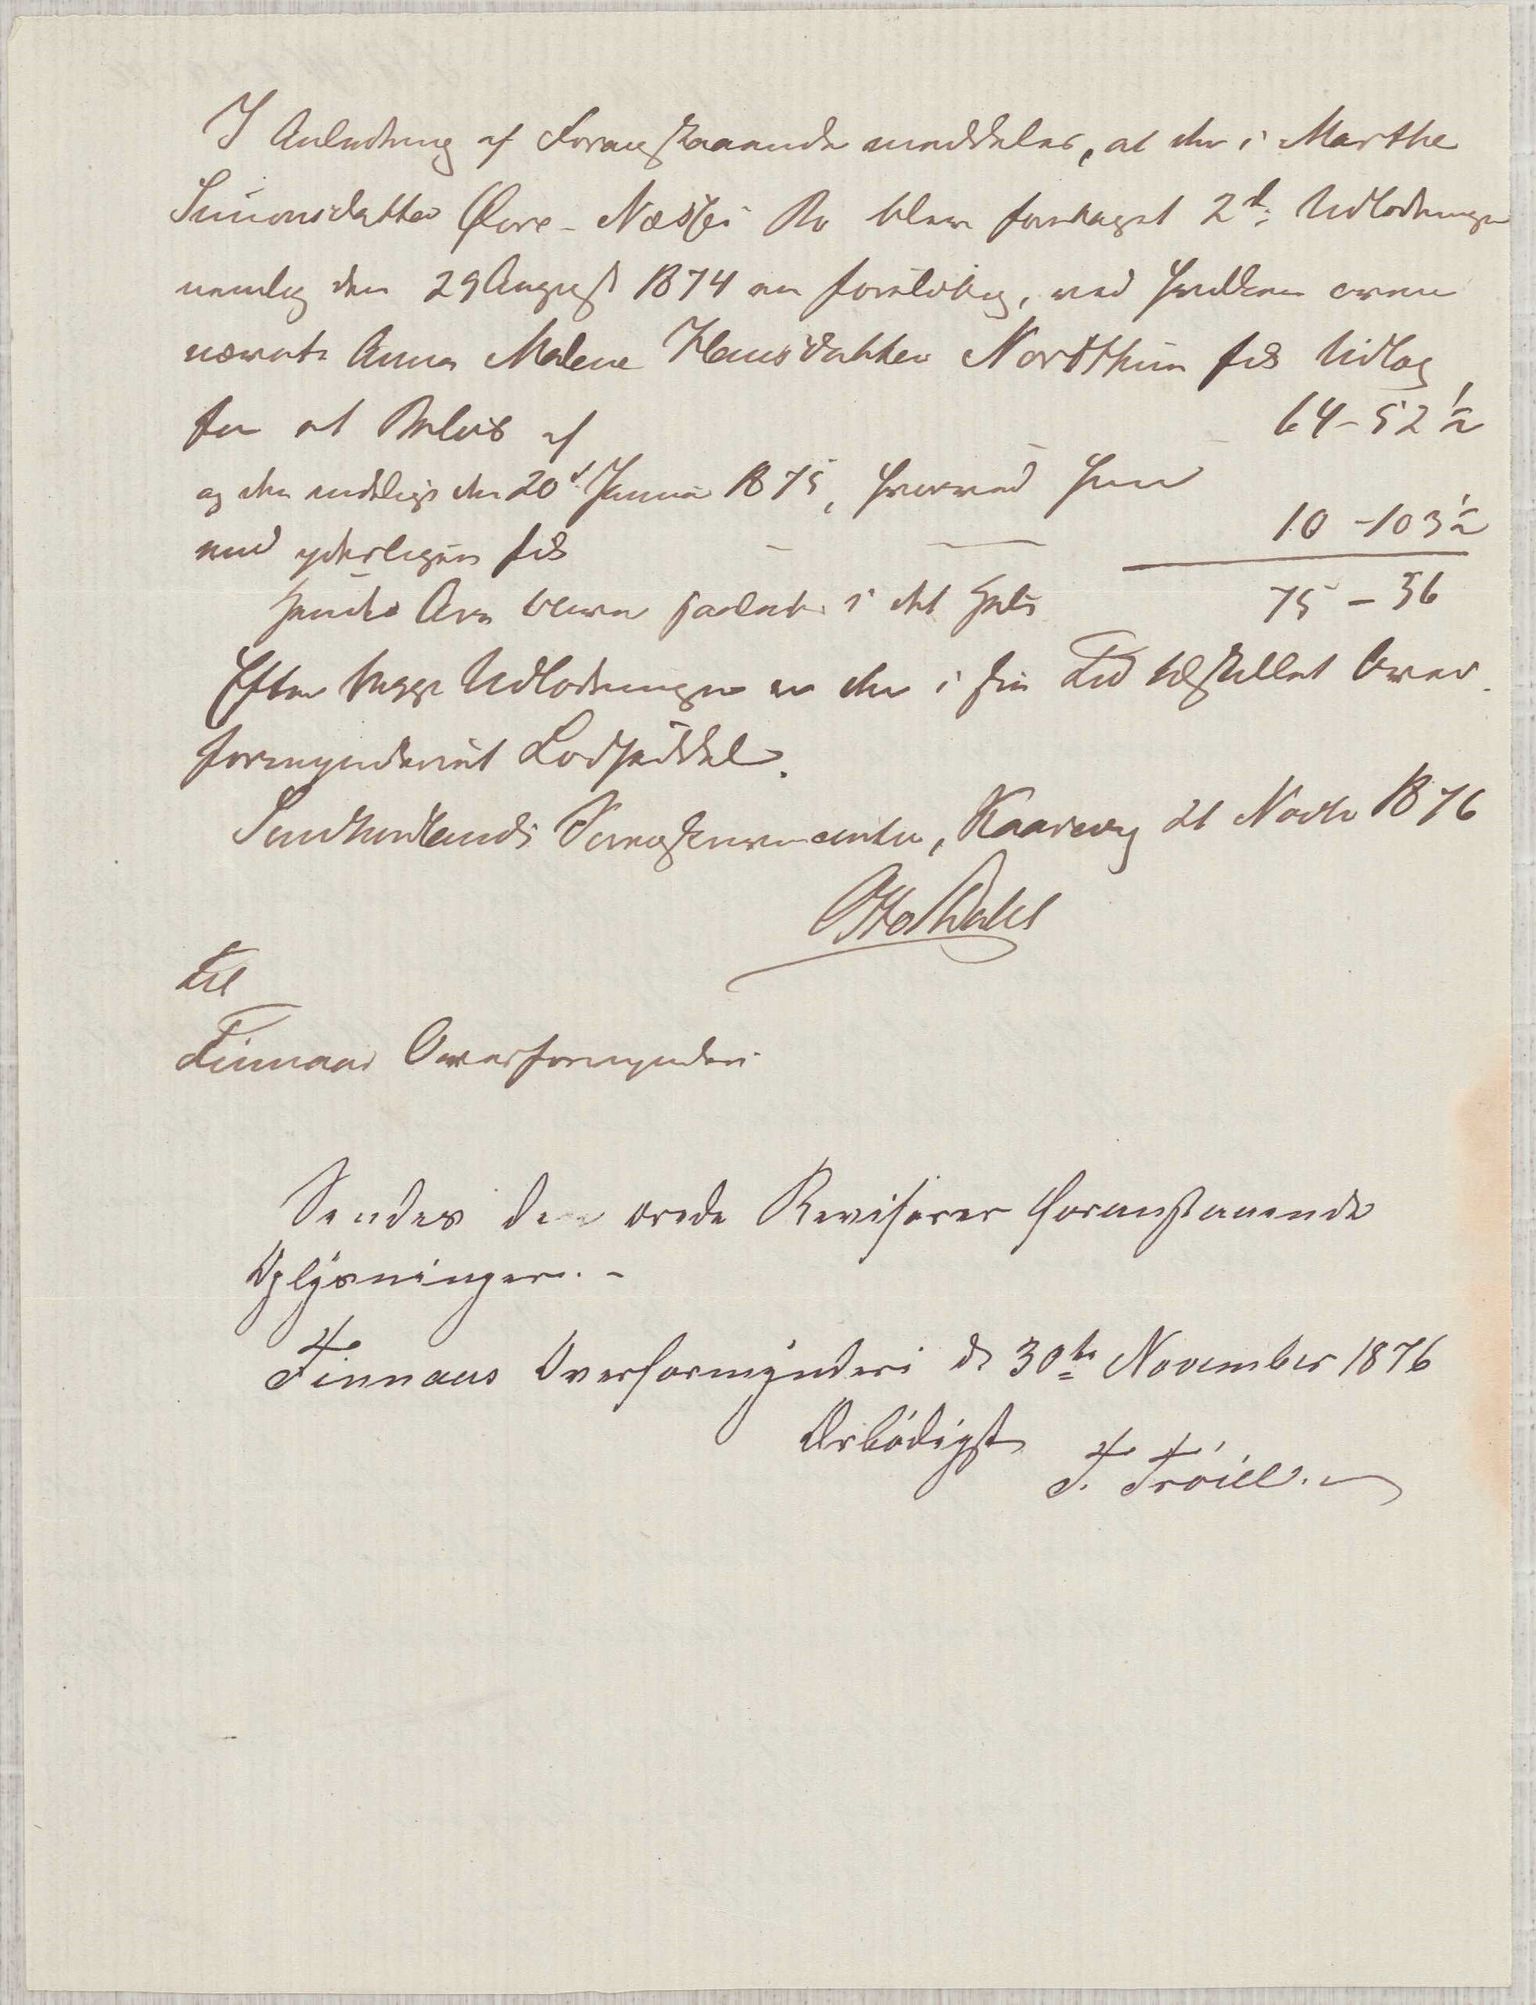 I Anledning af Foranstaaende meddeles, at der i Marthe
Simonsdatter Øvre-Næsses Bo blev foretaget 2de Udlodninger
nemlig den 29 August 1874 en foreløbig, ved hvilken oven
nævnte Anna Malene Hansdatter Nortthun fik Udlæg
for et Beløb af 64-52½
og den endelige den 20de Januar 1875, hvorved hun
end yderligere fik 10-103½
hendes Arv bliver saaledes i det Hele 75-36
Efter begge Udlodninger er der i sin Tid tilstillet Over-
formynderiet Lodseddel.
Søndhordlands Sorenskriverembede, Kaarevig 21 Novbr 1876
Otto Dahl
Til
Finnaas Overformynderi
Sendes de ærede Revisorer foranstaaende
Oplysninger. -
Finnaas Overformynderi d. 30te November 1876
Ærbödigst F. Tröill.